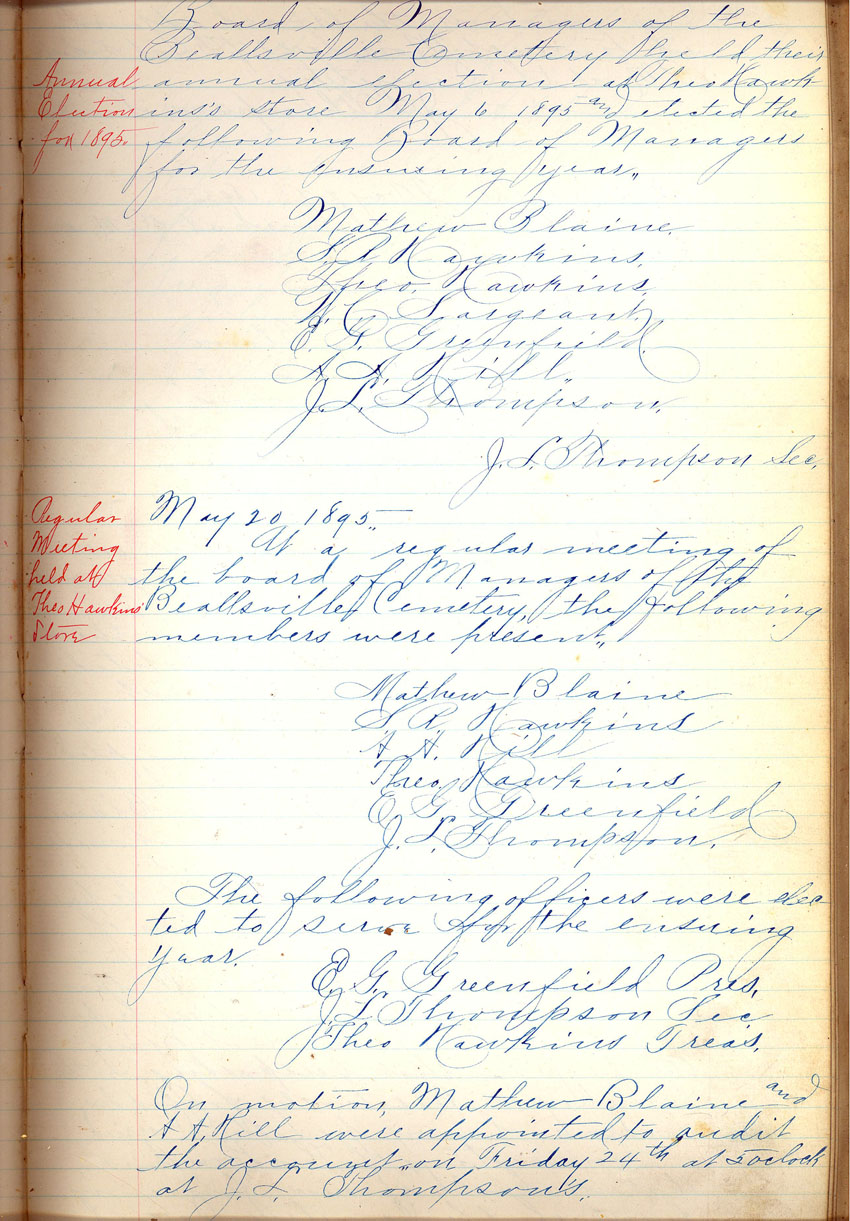 Board of Managers of the
Beallsville Cemetery Held their
Annual
annual election at Theo Hawk-
Election
ins's store May 6 1895 and elected the
for 1895
following Board of Managers
for the ensuing year,,
Mathew Blaine.
S. R. Hawkins.
Theo. Hawkins.
W. C. Sargeant
E. G. Greenfield.
A. A. Hill,,
J. L. Thompson.
J. L. Thompson Sec.
Regular
May 20, 1895,,
Meeting
At a regular meeting of
held at
the board of Managers of the
Theo Hawkins'
Beallsville Cemetery, the following
Store
members were present,,
Mathew Blaine
S. R. Hawkins
A. A. Hill
Theo. Hawkins
E. G. Greenfield
J. L. Thompson.
The following officers were elec
ted to serve for the ensuing
year.
E. G. Greenfield Pres,
J. L. Thompson Sec.
Theo Hawkins Treas.
On motion, Mathew Blaine and
A A. Hill were appointed to audit
the account,, on Friday 24th at 5 oclock
at J. L. Thompson's.